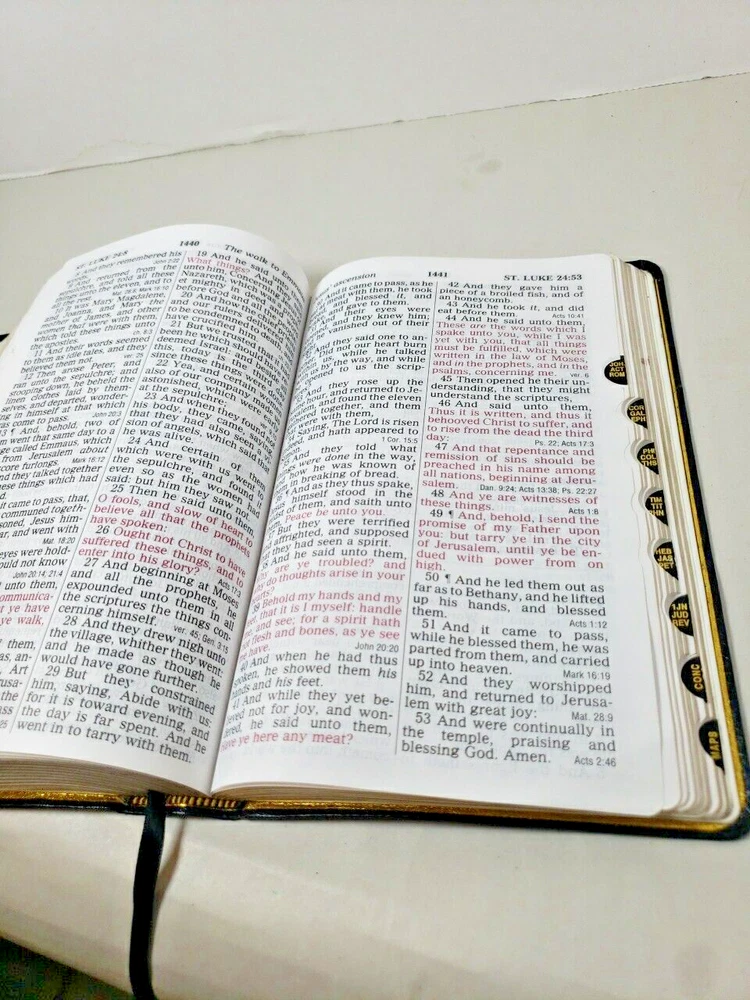 ST. LUKE 24:8
1440
The walk to
And they remembered his
John 2:22
And returned from the
and told all these
things unto the eleven, and to
all the rest.
was Mary Magdalene,
and Joanna, and Mary the
mother of James, and other
women that were with them,
which told these things unto
the apostles.
11 And their words seemed
to them as idle tales, and they
believed them not.
12 Then arose Peter, and
ran unto the sepulchre; and
stooping down, he beheld the
linen clothes laid by them-
selves, and departed, wonder-
ing in himself at that which
was come to pass.
And, behold, two of
went that same day to a
called Emmaus, which
from Jerusalem about
furlongs.
And they talked together
these things which had
it came to pass, that,
communed togeth-
Jesus him-
and went with
Mat. 18:20
eyes were hold-
should not know
John 20:14; 21:4
unto them,
communica-
ye have
ye walk,
them,
an-
Art
19 And he said
What things? And
unto him, Concerning
Nazareth, which
mighty in
before God and
20 And how the
and our rulers
to be condemned
have crucified
21 But we trusted
been which should
deemed Israel: and
this, today is the
since these things
22 Yea, and certain
also of our company
astonished, which were
at the sepulchre;
23 And when they found not
his body, they came, saying,
that they had also seen a vi-
sion of angels, which said that
he was alive.
24 And certain
which were with us went
the sepulchre, and found it
even so as the women had
said: but him they saw not.
25 Then he said unto them,
O fools, and slow of heart to
believe all that the prophets
have spoken:
26 Ought not Christ to have
suffered these things, and to
enter into his glory?
27 And beginning at Moses
and all the prophets, he
expounded unto them in all
the scriptures the things con-
cerning himself. ver. 45; Gen. 3:15
28 And they drew nigh unto
the village, whither they went:
and he made as though he
would have gone further.
29 But they constrained
him, saying, Abide with us:
for it is toward evening, and
the day is far spent. And he
went in to tarry with them.
ascension
1441
ST. LUKE 24:53
it came to pass, as he
meat with them, he took
and blessed it, and
and gave to them.
their eyes were
and they knew him;
vanished out of their
they said one to an-
Did not our heart burn
us, while he talked
us by the way, and while
opened to us the scrip-
they rose up the
hour, and returned to Je-
and found the eleven
together, and them
were with them,
Saying, The Lord is risen
and hath appeared to
1 Cor. 15:5
they told what
things were done in the way,
how he was known of
in breaking of bread.
And as they thus spake,
himself stood in the
of them, and saith unto
Peace be unto you.
But they were terrified
affrighted, and supposed
they had seen a spirit.
And he said unto them,
are ye troubled? and
do thoughts arise in your
Behold my hands and my
that it is I myself: handle
and see; for a spirit hath
flesh and bones, as ye see
have. John 20:20
40 And when he had thus
spoken, he showed them his
hands and his feet.
And while they yet be-
lieved not for joy, and won-
dered, he said unto them,
Have ye here any meat?
42 And they gave him a
piece of a broiled fish, and of
an honeycomb.
43 And he took it, and did
eat before them. Acts 10:41
44 And he said unto them,
These are the words which I
spake unto you, while I was
yet with you, that all things
must be fulfilled, which were
written in the law of Moses,
and in the prophets, and in the
psalms, concerning me. ver. 6
45 Then opened he their un-
derstanding, that they might
understand the scriptures,
46 And said unto them,
Thus it is written, and thus it
behooved Christ to suffer, and
to rise from the dead the third
day: Ps. 22; Acts 17:3
47 And that repentance and
remission of sins should be
preached in his name among
all nations, beginning at Jeru-
salem. Dan. 9:24; Acts 13:38; Ps. 22:27
48 And ye are witnesses of
these things. Acts 1:8
49 ¶ And, behold, I send the
promise of my Father upon
you: but tarry ye in the city
of Jerusalem, until ye be en-
dued with power from on
high.
50 ¶ And he led them out as
far as to Bethany, and he lifted
up his hands, and blessed
them. Acts 1:12
51 And it came to pass,
while he blessed them, he was
parted from them, and carried
up into heaven. Mark 16:19
52 And they worshipped
him, and returned to Jerusa-
lem with great joy: Mat. 28:9
53 And were continually in
the temple, praising and
blessing God. Amen. Acts 2:46
JOH
ACT
ROM
COR
GAL
EPH
PHI
COL
THS
TIM
TIT
PHN
HEB
JAS
PET
1JN
JUD
REV
CONC
MAPS